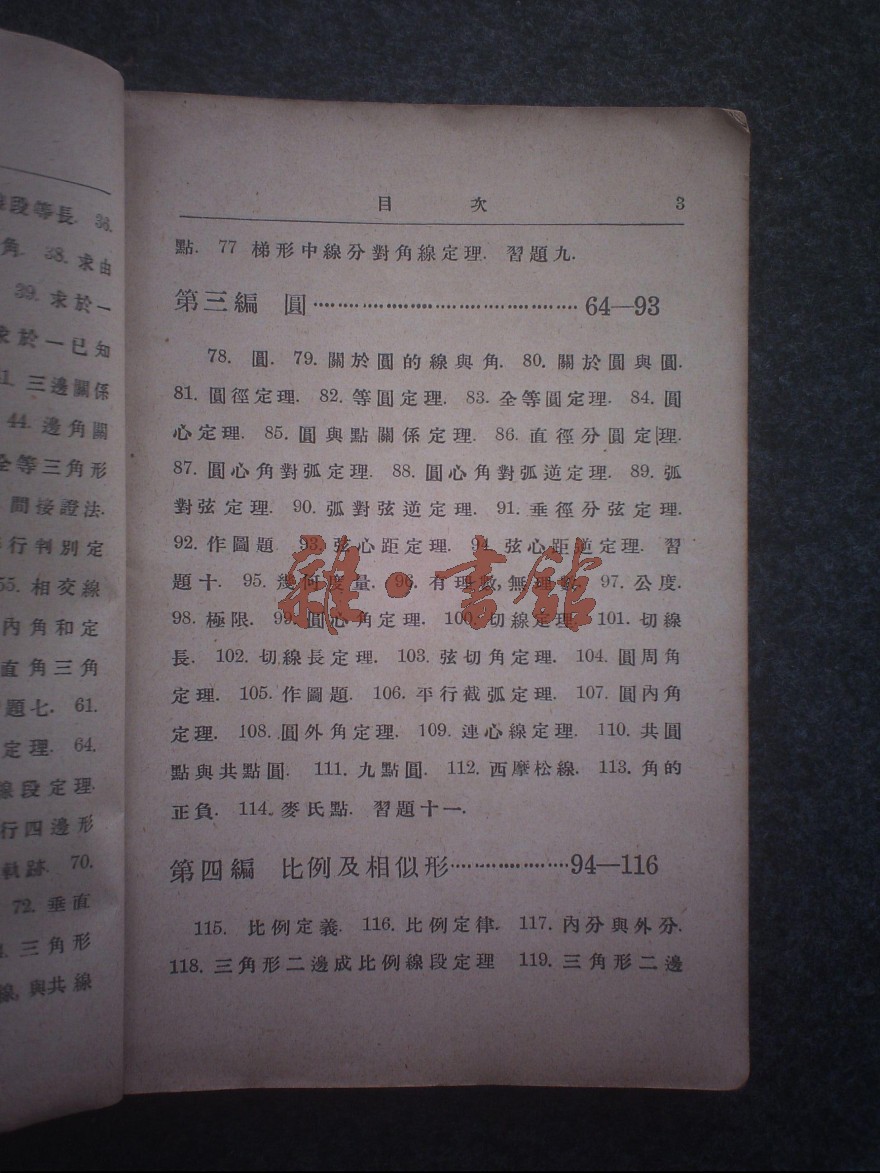 段等長. 36.
角. 38. 求由
39. 求於一
求於一已知
三邊關係
44. 邊角關
全等三角形
間接證法.
行判別定
55. 相交線
內角和定
直角三角
題七. 61.
定理. 64.
線段定理.
行四邊形
軌跡. 70.
72. 垂直
三角形
線,與共線
目 次 3
點. 77 梯形中線分對角線定理. 習題九.
第三編 圓……………………………64—93
78. 圓. 79. 關於圓的線與角. 80. 關於圓與圓.
81. 圓徑定理. 82. 等圓定理. 83. 全等圓定理. 84. 圓
心定理. 85. 圓與點關係定理. 86. 直徑分圓定理.
87. 圓心角對弧定理. 88. 圓心角對弧逆定理. 89. 弧
對弦定理. 90. 弧對弦逆定理. 91. 垂徑分弦定理.
92. 作圖題. 93. 弦心距定理. 94. 弦心距逆定理. 習
題十. 95. 幾何度量. 96. 有理數,無理數. 97. 公度.
98. 極限. 99. 圓心角定理. 100. 切線定理. 101. 切線
長. 102. 切線長定理. 103. 弦切角定理. 104. 圓周角
定理. 105. 作圖題. 106. 平行截弧定理. 107. 圓內角
定理. 108. 圓外角定理. 109. 連心線定理. 110. 共圓
點與共點圓. 111. 九點圓. 112. 西摩松線. 113. 角的
正負. 114. 麥氏點. 習題十一.
第四編 比例及相似形……………94—116
115. 比例定義. 116. 比例定律. 117. 內分與外分.
118. 三角形二邊成比例線段定理 119. 三角形二邊
雜·書館